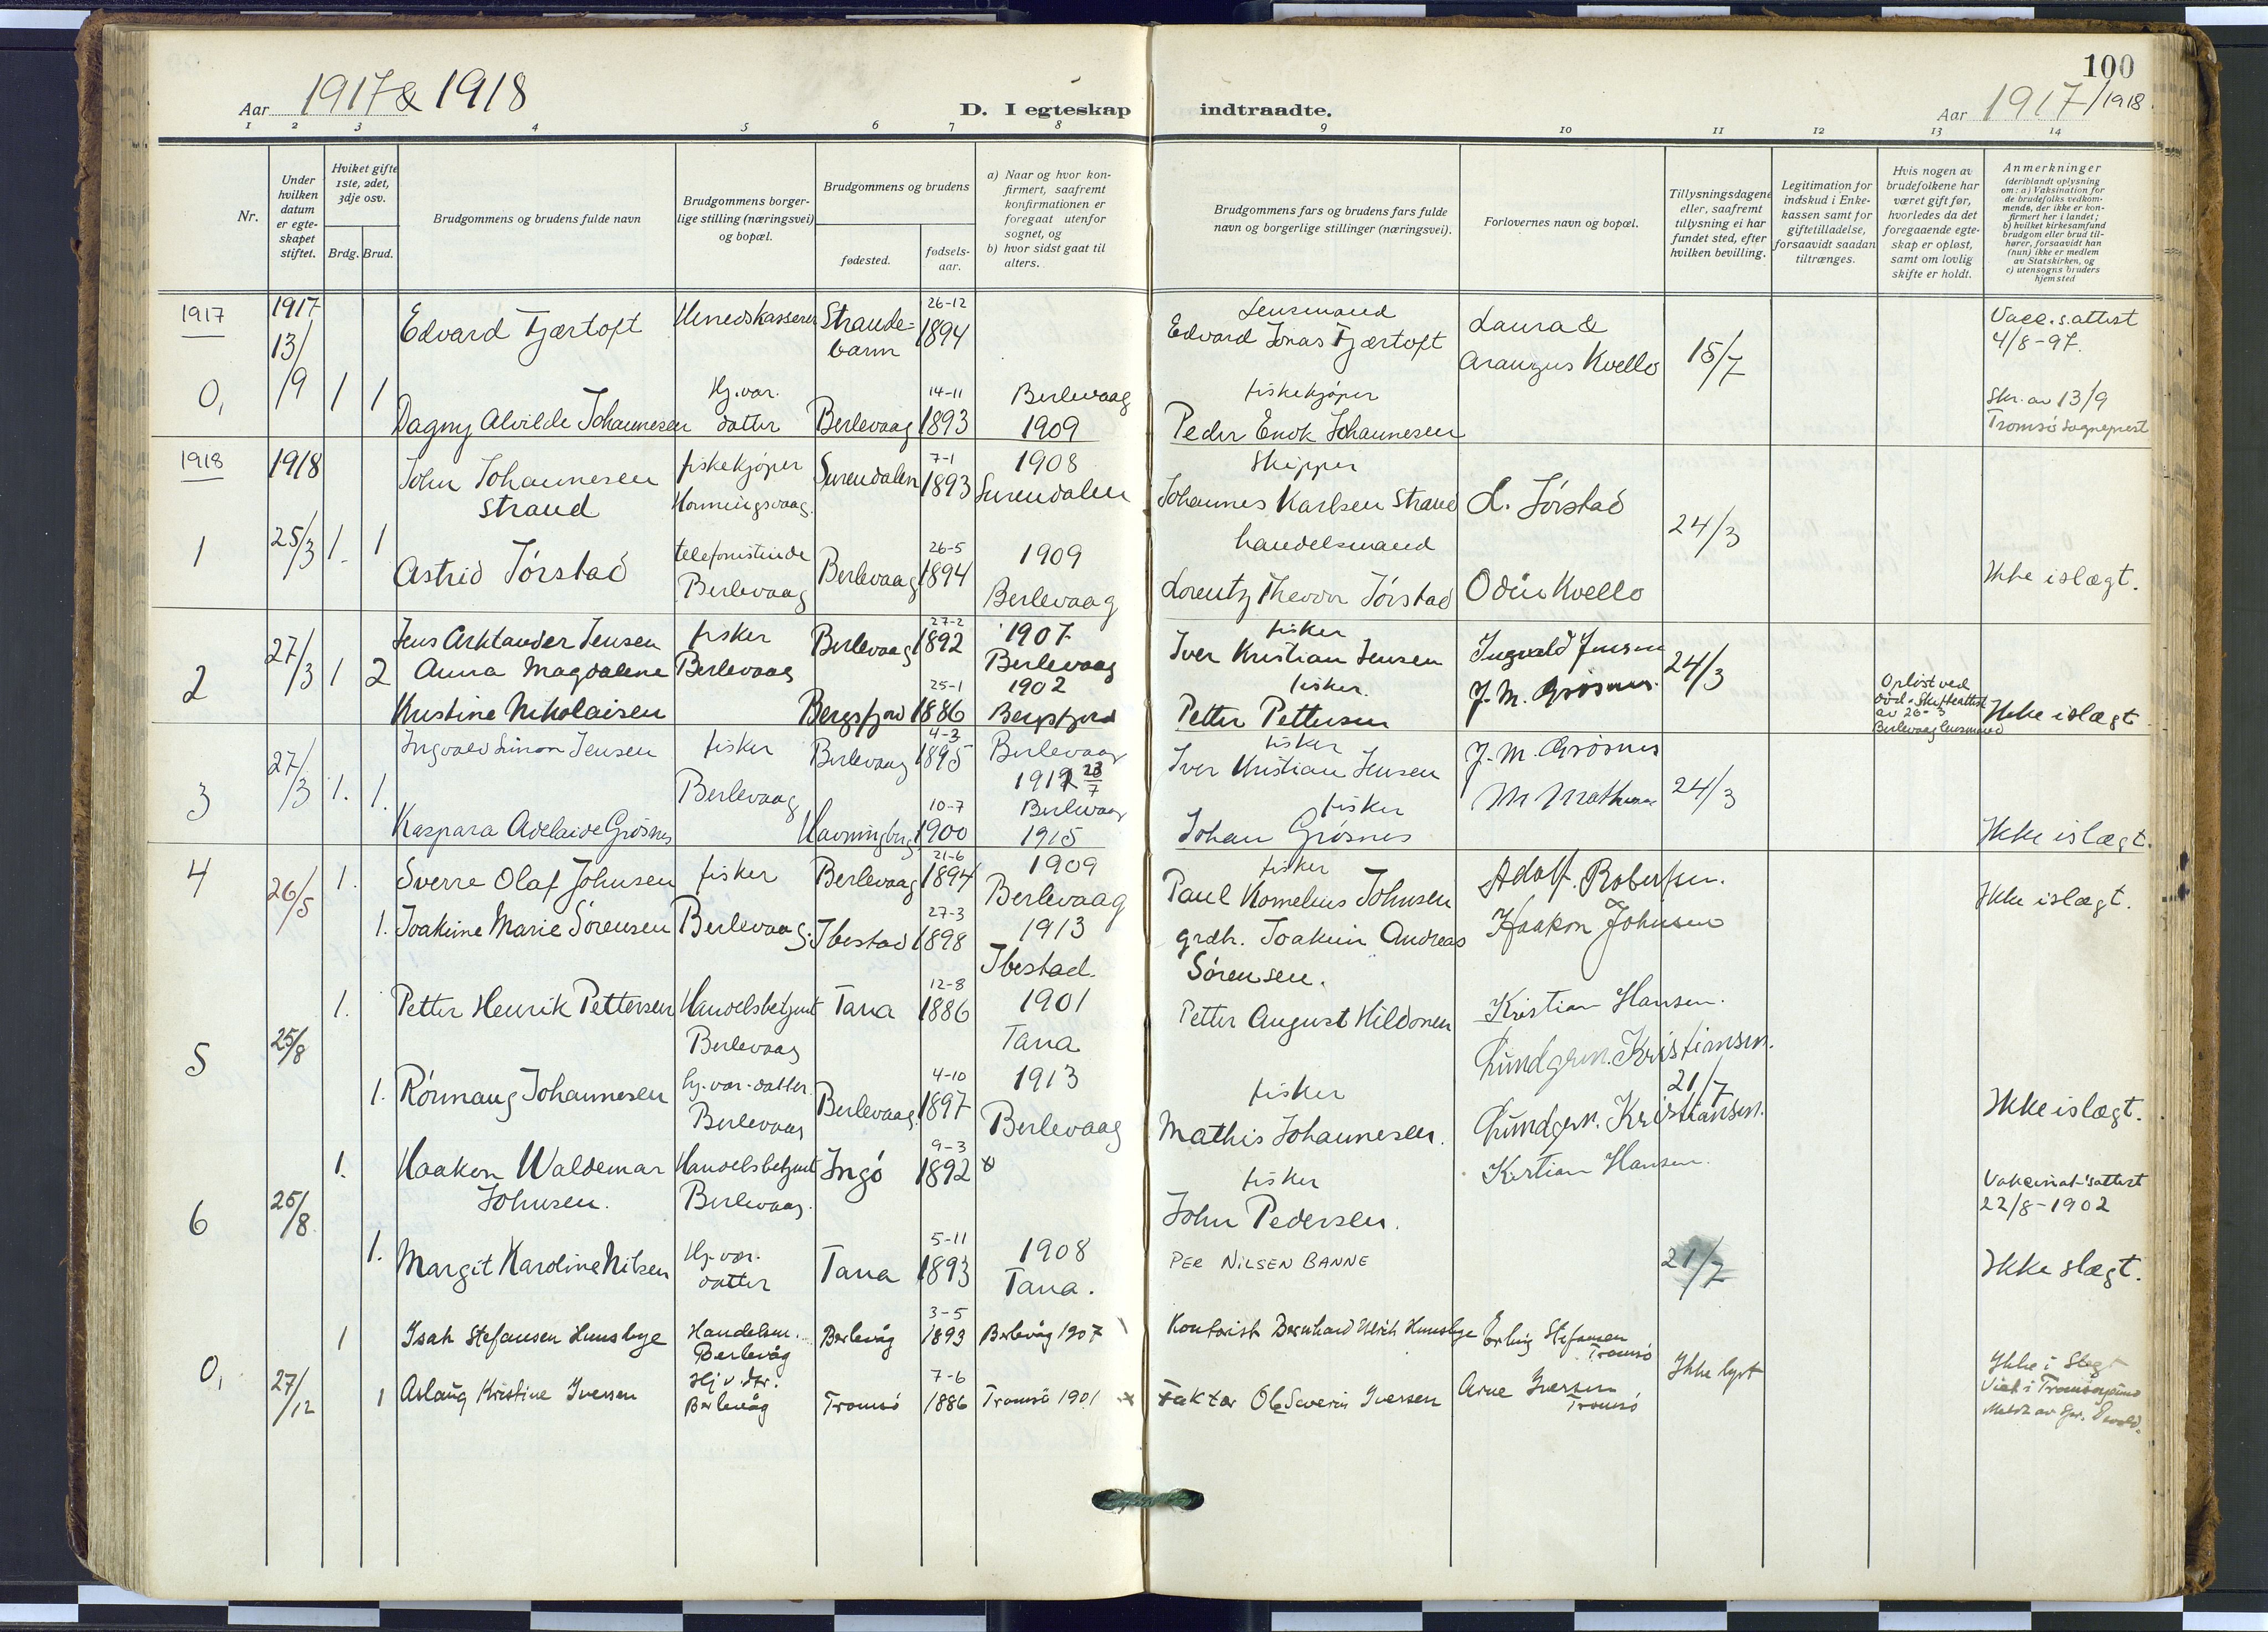 100
Aar 1917 & 1918
D. I egteskap indtraadte.
Aar 1917/1918
1 2 3 4 5 6 7 8 9 10 11 12 13 14
Nr.
Under hvilken datum er egteskapet stiftet.
Hviket gifte 1ste, 2det, 3dje osv.
Brdg. Brud.
Brudgommens og brudens fulde navn
Brudgommens borgerlige stilling (næringsvei) og bopæl.
Brudgommens og brudens
fødested.
fødselsaar.
a) Naar og hvor konfirmert, saafremt konfirmationen er foregaat utenfor sognet, og
b) hvor sidst gaat til alters.
Brudgommens fars og brudens fars fulde navn og borgerlige stillinger (næringsvei).
Forlovernes navn og bopæl.
Tillysningsdagene eller, saafremt tillysning ei har fundet sted, efter hvilken bevilling.
Legitimation for indskud i Enkekassen samt for giftetilladelse, forsaavidt saadan tiltrænges.
Hvis nogen av brudefolkene har været gift før, hvorledes da det foregaaende egteskap er opløst, samt om lovlig skifte er holdt.
Anmerkninger
(deriblandt oplysning om: a) Vaksination for de brudefolks vedkommende, der ikke er konfirmert her i landet; b) hvilket kirkesamfund brudgom eller brud tilhører, forsaavidt han (hun) ikke er medlem av Statskirken, og c) utensogns bruders hjemsted
1917 1917 Edvard Tjærtoft Herredskasserer Strandebarm 26-12 1894
Lensmand Edvard Jonas Tjærtoft Laura & Arauzus Kvello 15/7 Vacc.s.attest 4/8-97.
0, 13/9 1 1 Dagny Alvilde Johannesen Hj.var. datter Berlevaag 14-11 1893 Berlevaag 1909
fiskekjøper Peder Enok Johannesen Skr. av 13/9 Tromsø Sogneprest
1918 1918 John Johannesen Strand fiskekjøper Honningsvaag. Surendalen 7-1 1893 1908 Surendalen
Skipper Johannes Karlsen Strand L. Jørstad
1 25/3 1. 1 Astrid Jørstad telefonistinde Berlevaag Berlevaag 26-5 1894 1909 Berlevaag
handelsmand Lorentz Theodor Jørstad Odin Kvello 24/3 Ikke i slægt.
2 27/3 1 2 Jens Arktander Jensen fisker Berlevaag Berlevaag 27-2 1892 1907 Berlevaag
fisker Iver Kristian Jensen Ingvald Jensen 24/3
Anna Magdalene Kristine Nikolaisen Bergsfjord 25-1 1886 1902 Bergsfjord
fisker. Petter Pettersen J. M. Grøsnes. Opløst ved død. Skifteattest av 26-3 Berlevaag lensmand Ikke i slægt
3 27/3 1. 1. Ingvald Simon Jensen fisker Berlevaag Berlevaag 4-3 1895 Berlevaag 1912 23/7
fisker Iver Kristian Jensen J. M. Grøsnes 24/3
Kaspara Adelaide Grøsnes Havningberg 10-7 1900 Berlevaag 1915
fisker Johan Grøsnes M Mathisen Ikke i slægt.
4 26/5 1. Sverre Olaf Johnsen fisker Berlevaag. Berlevaag 21-6 1894 1909 Berlevaag
fisker Paul Kornelius Johnsen Adolf. Robertsen. Ikke i slægt.
1. Joakime Marie Sörensen Ibestad 27-3 1898 1913 Ibestad.
grdbr. Joakim Andreas Sörensen. Haakon Johnsen
5 25/8 1. Petter Henrik Pettersen Handelsbetjent Berlevaag Tana 12-8 1886 1901 Tana
Petter August Hildonen Kristian Hansen.
Kristiansen.
1. Rönnaug Johannesen hj.var.datter Berlevaag Berlevaag. 4-10 1897 1913 Berlevaag
fisker Mathis Johannesen. Kristiansen. 21/7 Ikke i slægt.
6 25/8 1. Haakon Waldemar Johnsen. Handelsbetjent Berlevaag. Ingö 9-3 1892
fisker John Pedersen. Kristian Hansen. Vakcinat.sattest 22/8-1902
1. Margit Karoline Nilsen Hj. var. datter Tana 5-11 1893 1908 Tana.
PER NILSEN BANNE 21/7 Ikke slægt.
0, 27/12 1 Isak Stefansen Humsbye Handelsm. Berlevåg Berlevåg 3-5 1893 Berlevåg 1907
Kontorist Bernhard Ulrich Humsbye Erling Stefansen Tromsö Ikke lyst
1 Aslaug Kristine Iversen Hj v. dtr. Berlevåg Tromsö 7-6 1886 Tromsö 1901
Faktor Ole Severin Iversen Arne Iversen Tromsö Ikke i Slegt Viet i Tromsøysund Meldt av Spr.